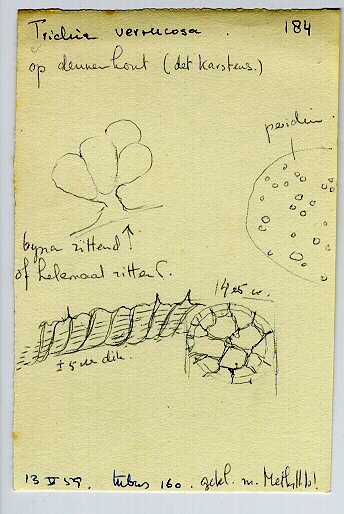 Trichia verrucosa. 184
op dennenhout (det Karstens.)
peridie
byna zittend
of helemaal zittend.
14 à 15 u.
± 5 u dik.
13 V 59. tubus 160. gekl. m. Methylbl!